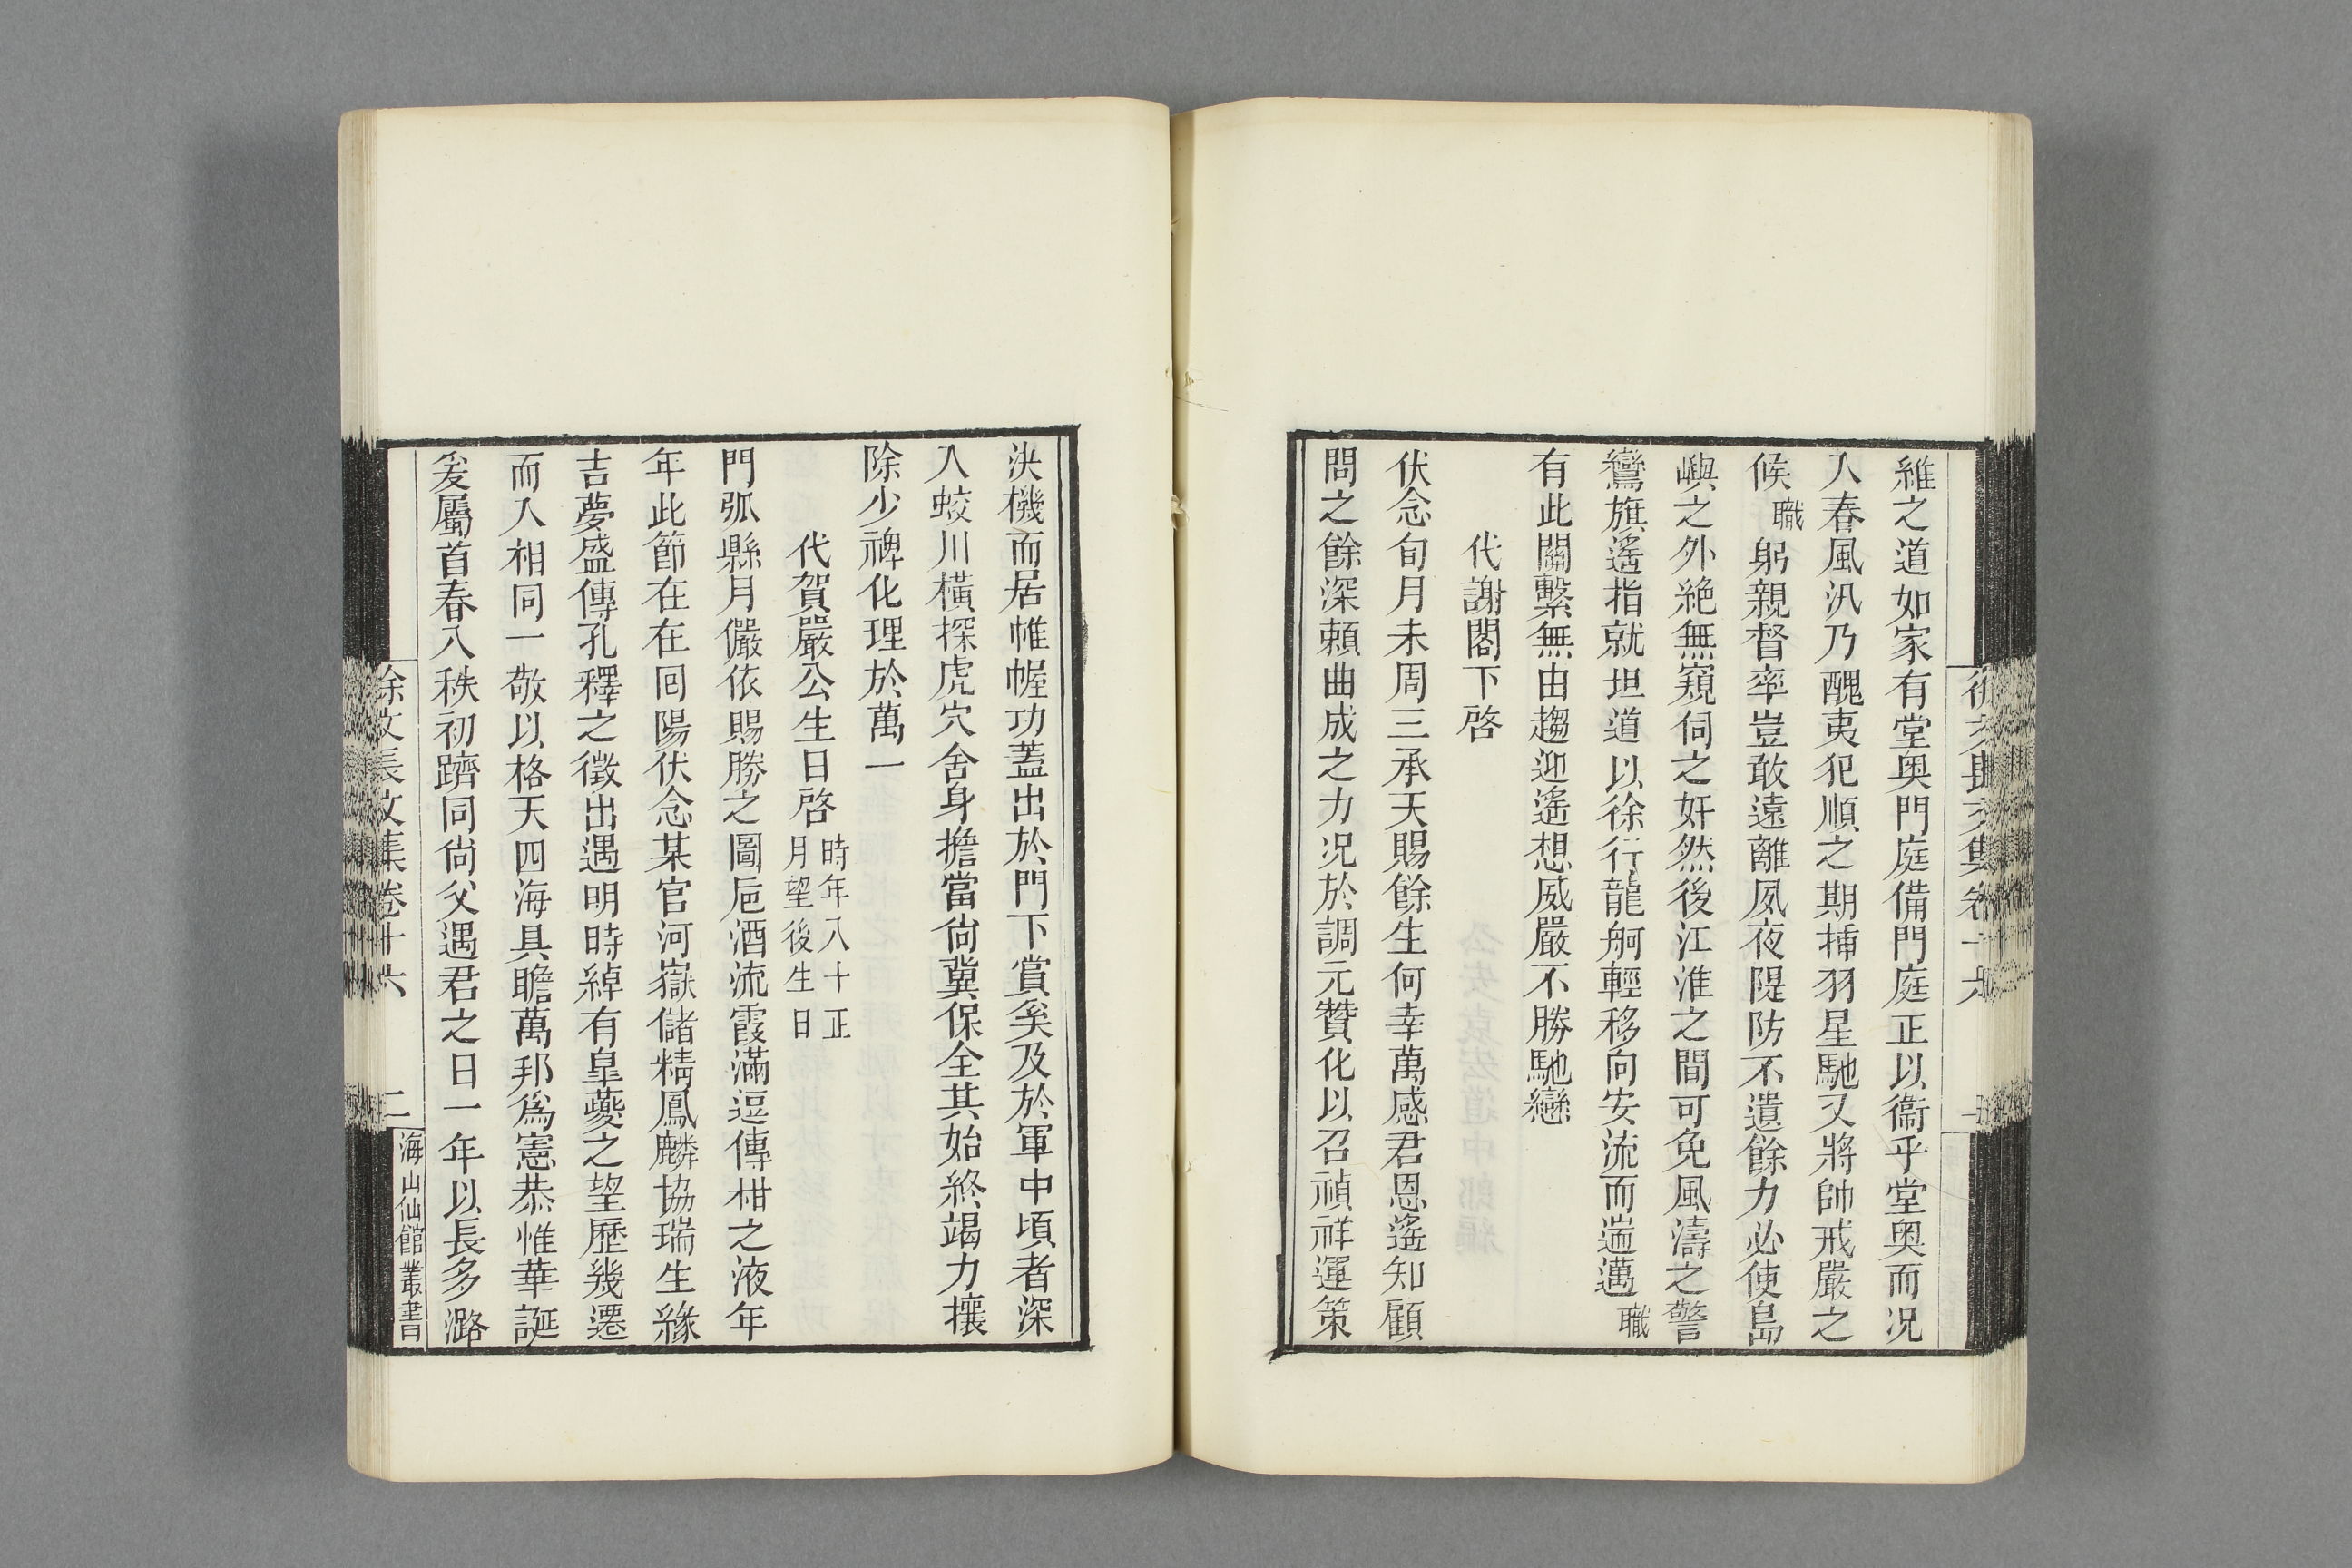 維之道如家有堂奥門庭備門庭正以衞乎堂奥而况
入春風汛乃醜夷犯順之期揷羽星馳又將帥戒嚴之
候職躬親督率豈敢遠離夙夜隄防不遺餘力必使島
嶼之外絶無窺伺之奸然後江淮之間可免風濤之警
鸞旗遙指就坦道以徐行龍舸輕移向安流而遄邁職
有此關繫無由趨迎遙想威嚴不勝馳戀
代謝閣下啓
伏念旬月未周三承天賜餘生何幸萬感君恩遙知顧
問之餘深頼曲成之力况於調元贊化以召禎祥運策
決機而居帷幄功蓋出於門下賞奚及於軍中頃者深
入蛟川橫探虎穴舍身擔當尙冀保全其始終竭力攘
除少裨化理於萬一
代賀嚴公生日啓時年八十正
月望後生日
門弧縣月儼依賜勝之圖巵酒流霞滿逗傳柑之液年
年此節在在回陽伏念某官河嶽儲精鳳麟協瑞生緣
吉夢盛傳孔釋之徵出遇明時綽有皐夔之望歷幾遷
而入相同一敬以格天四海具瞻萬邦爲憲恭惟華誕
爰屬首春八秩初躋同尙父遇君之日一年以長多潞
徐文長文集卷十六 二 海山仙館叢書